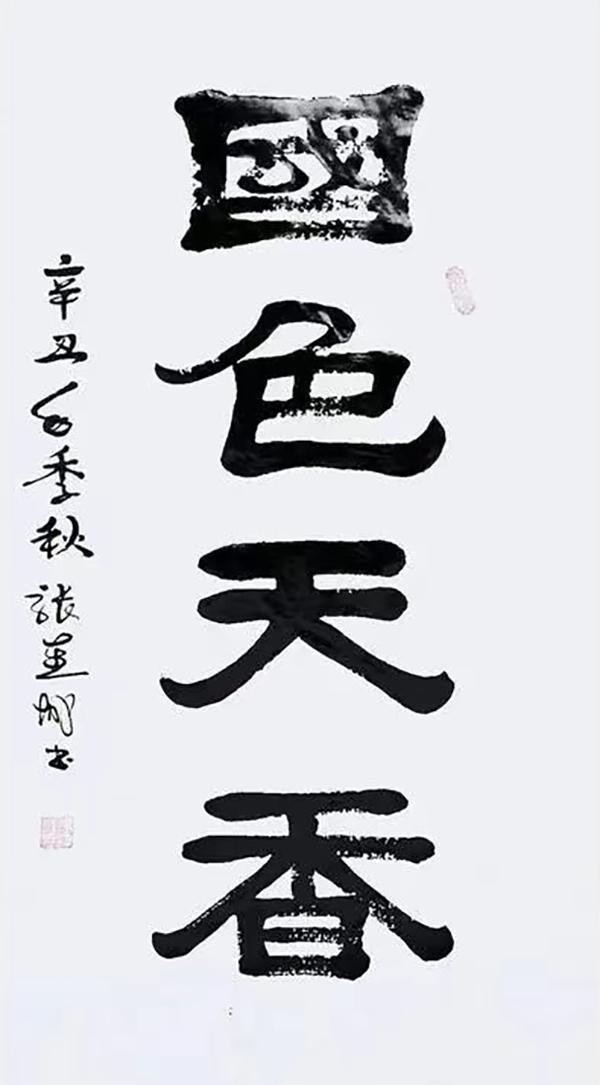 國色天香
辛丑年季秋張建城書